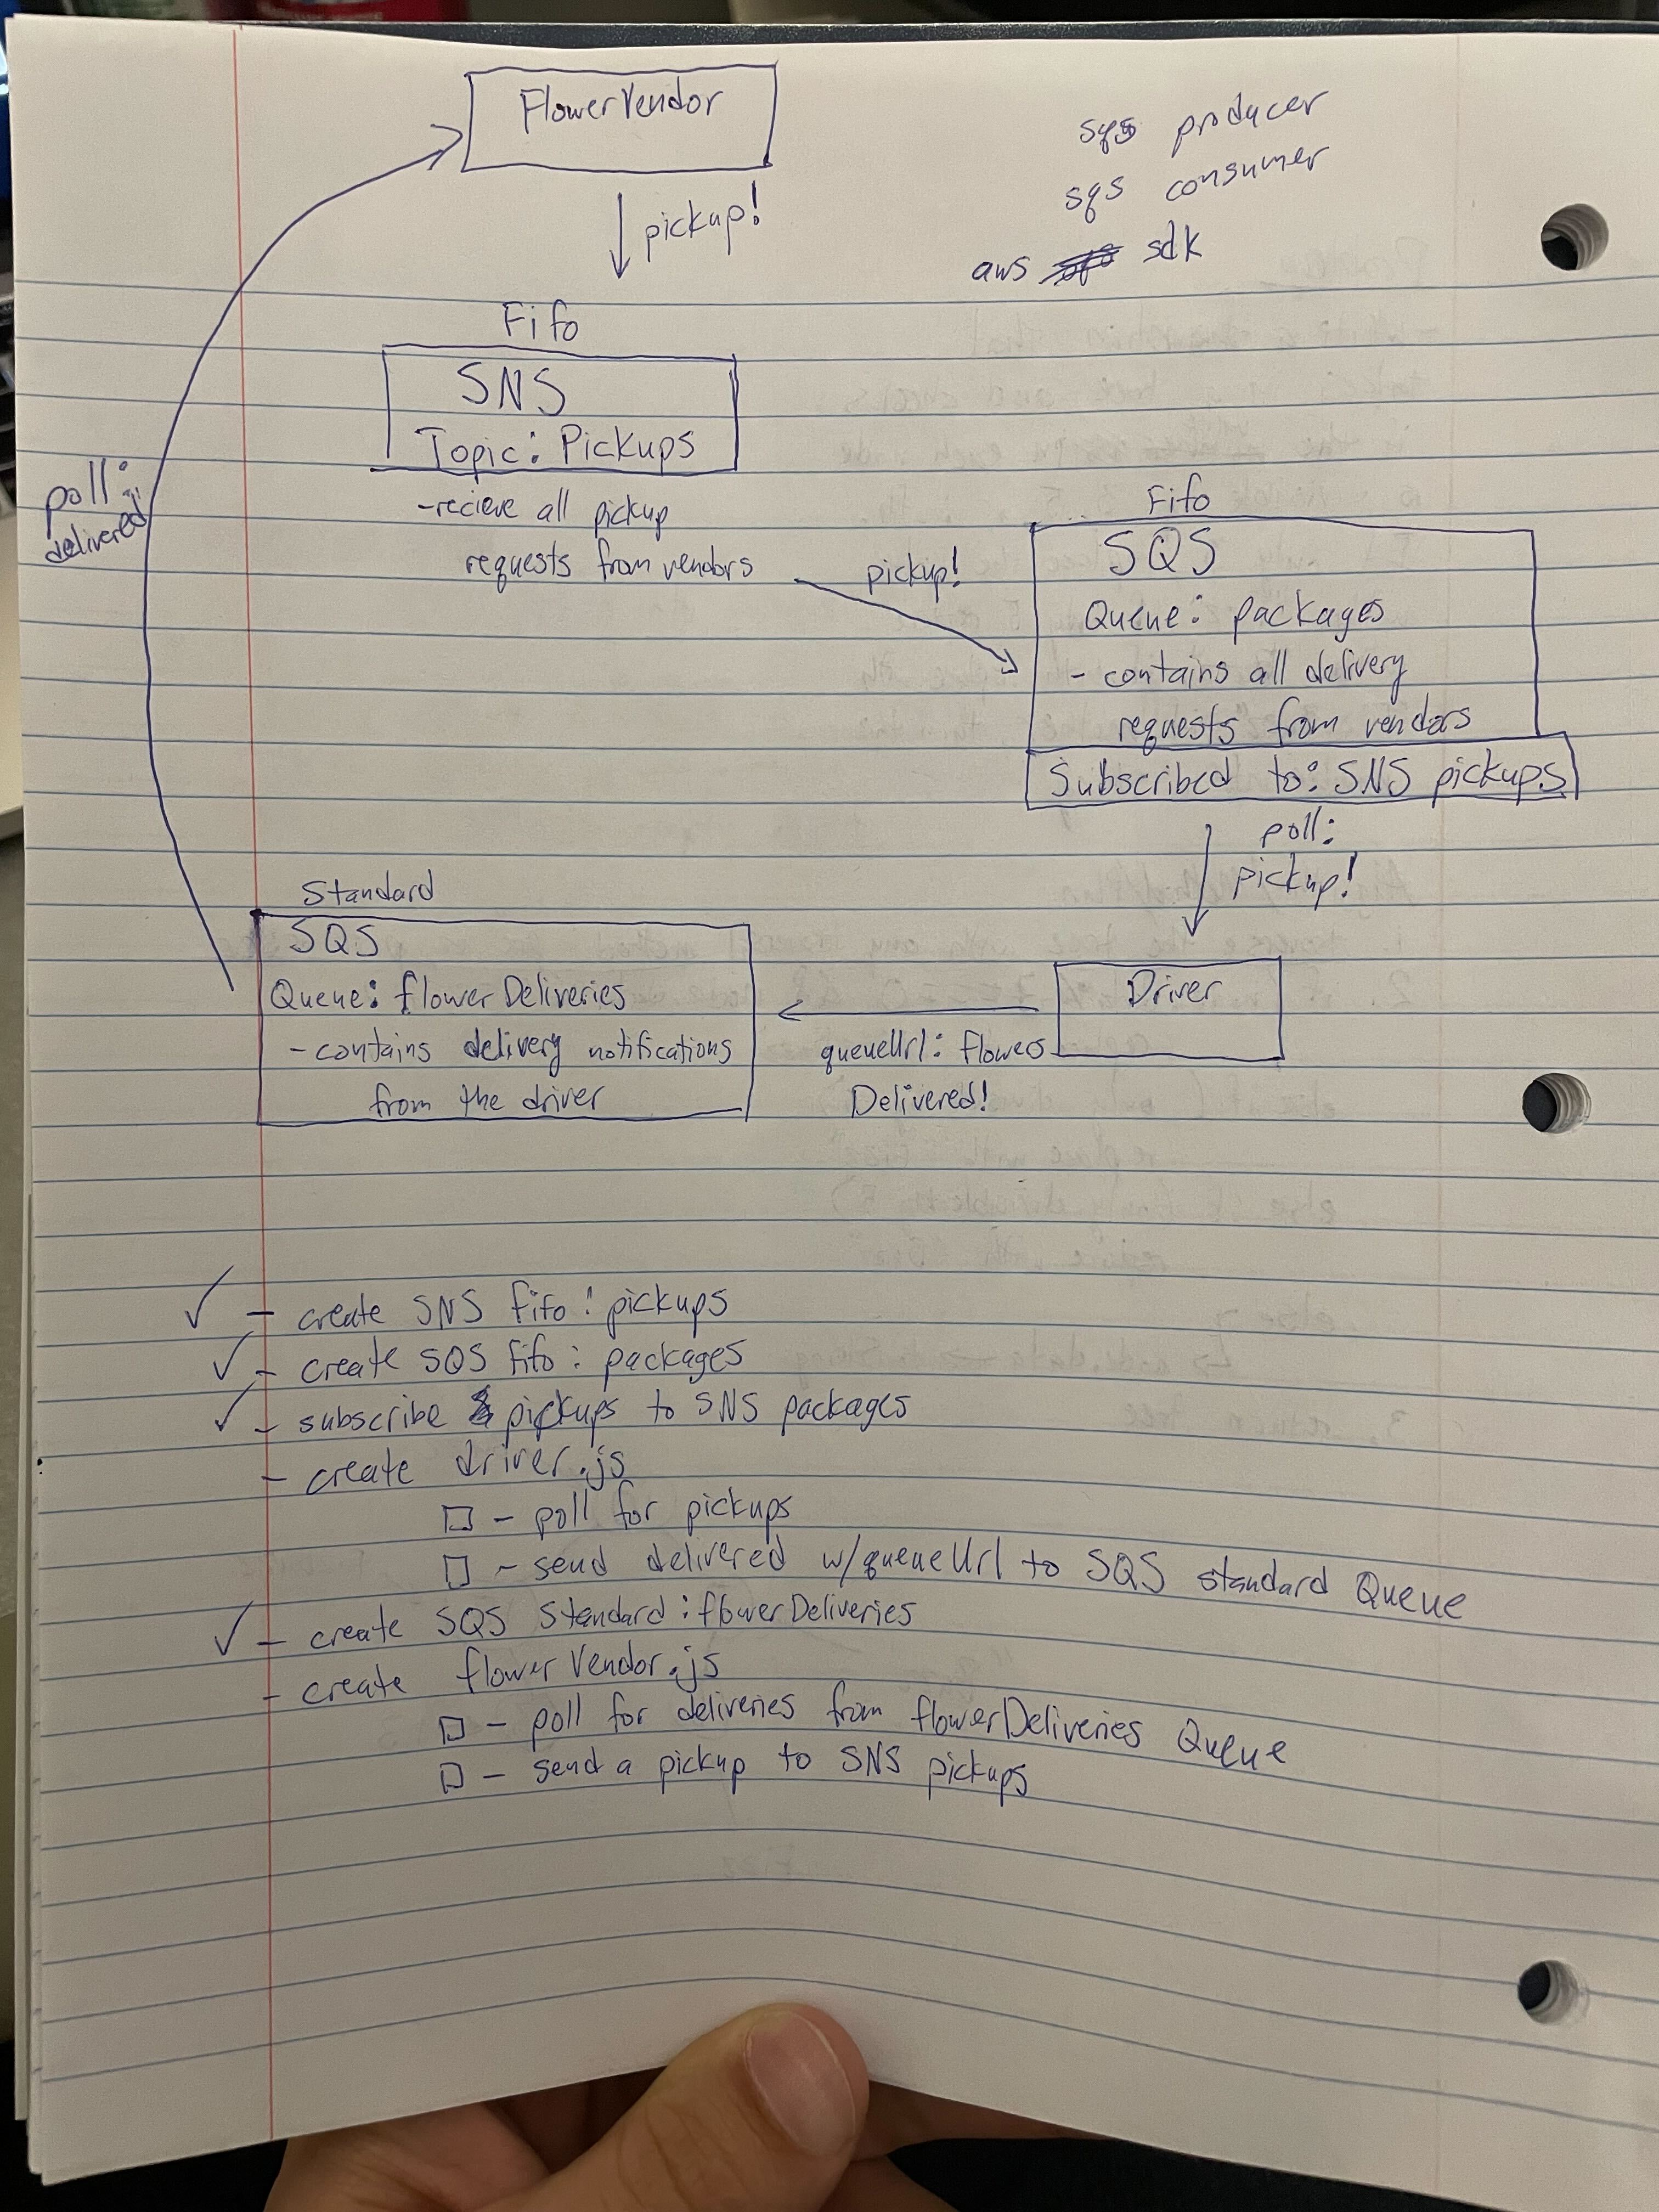 FlowerVendor
sqs producer
sqs consumer
aws sdk
pickup!
Fifo
SNS
Topic: Pickups
-recieve all pickup
requests from vendors
poll:
delivered
pickup!
Fifo
SQS
Queue: packages
- contains all delivery
requests from vendors
Subscribed to: SNS pickups
poll:
pickup!
Driver
queueUrl: flowers
Delivered!
Standard
SQS
Queue: flowerDeliveries
- contains delivery notifications
from the driver
✓ - create SNS fifo: pickups
✓ - create SQS fifo: packages
✓ - subscribe pickups to SNS packages
- create driver.js
□ - poll for pickups
□ - send delivered w/queueUrl to SQS standard Queue
✓ - create SQS Standard: flowerDeliveries
- create flowerVendor.js
□ - poll for deliveries from flowerDeliveries Queue
□ - send a pickup to SNS pickups